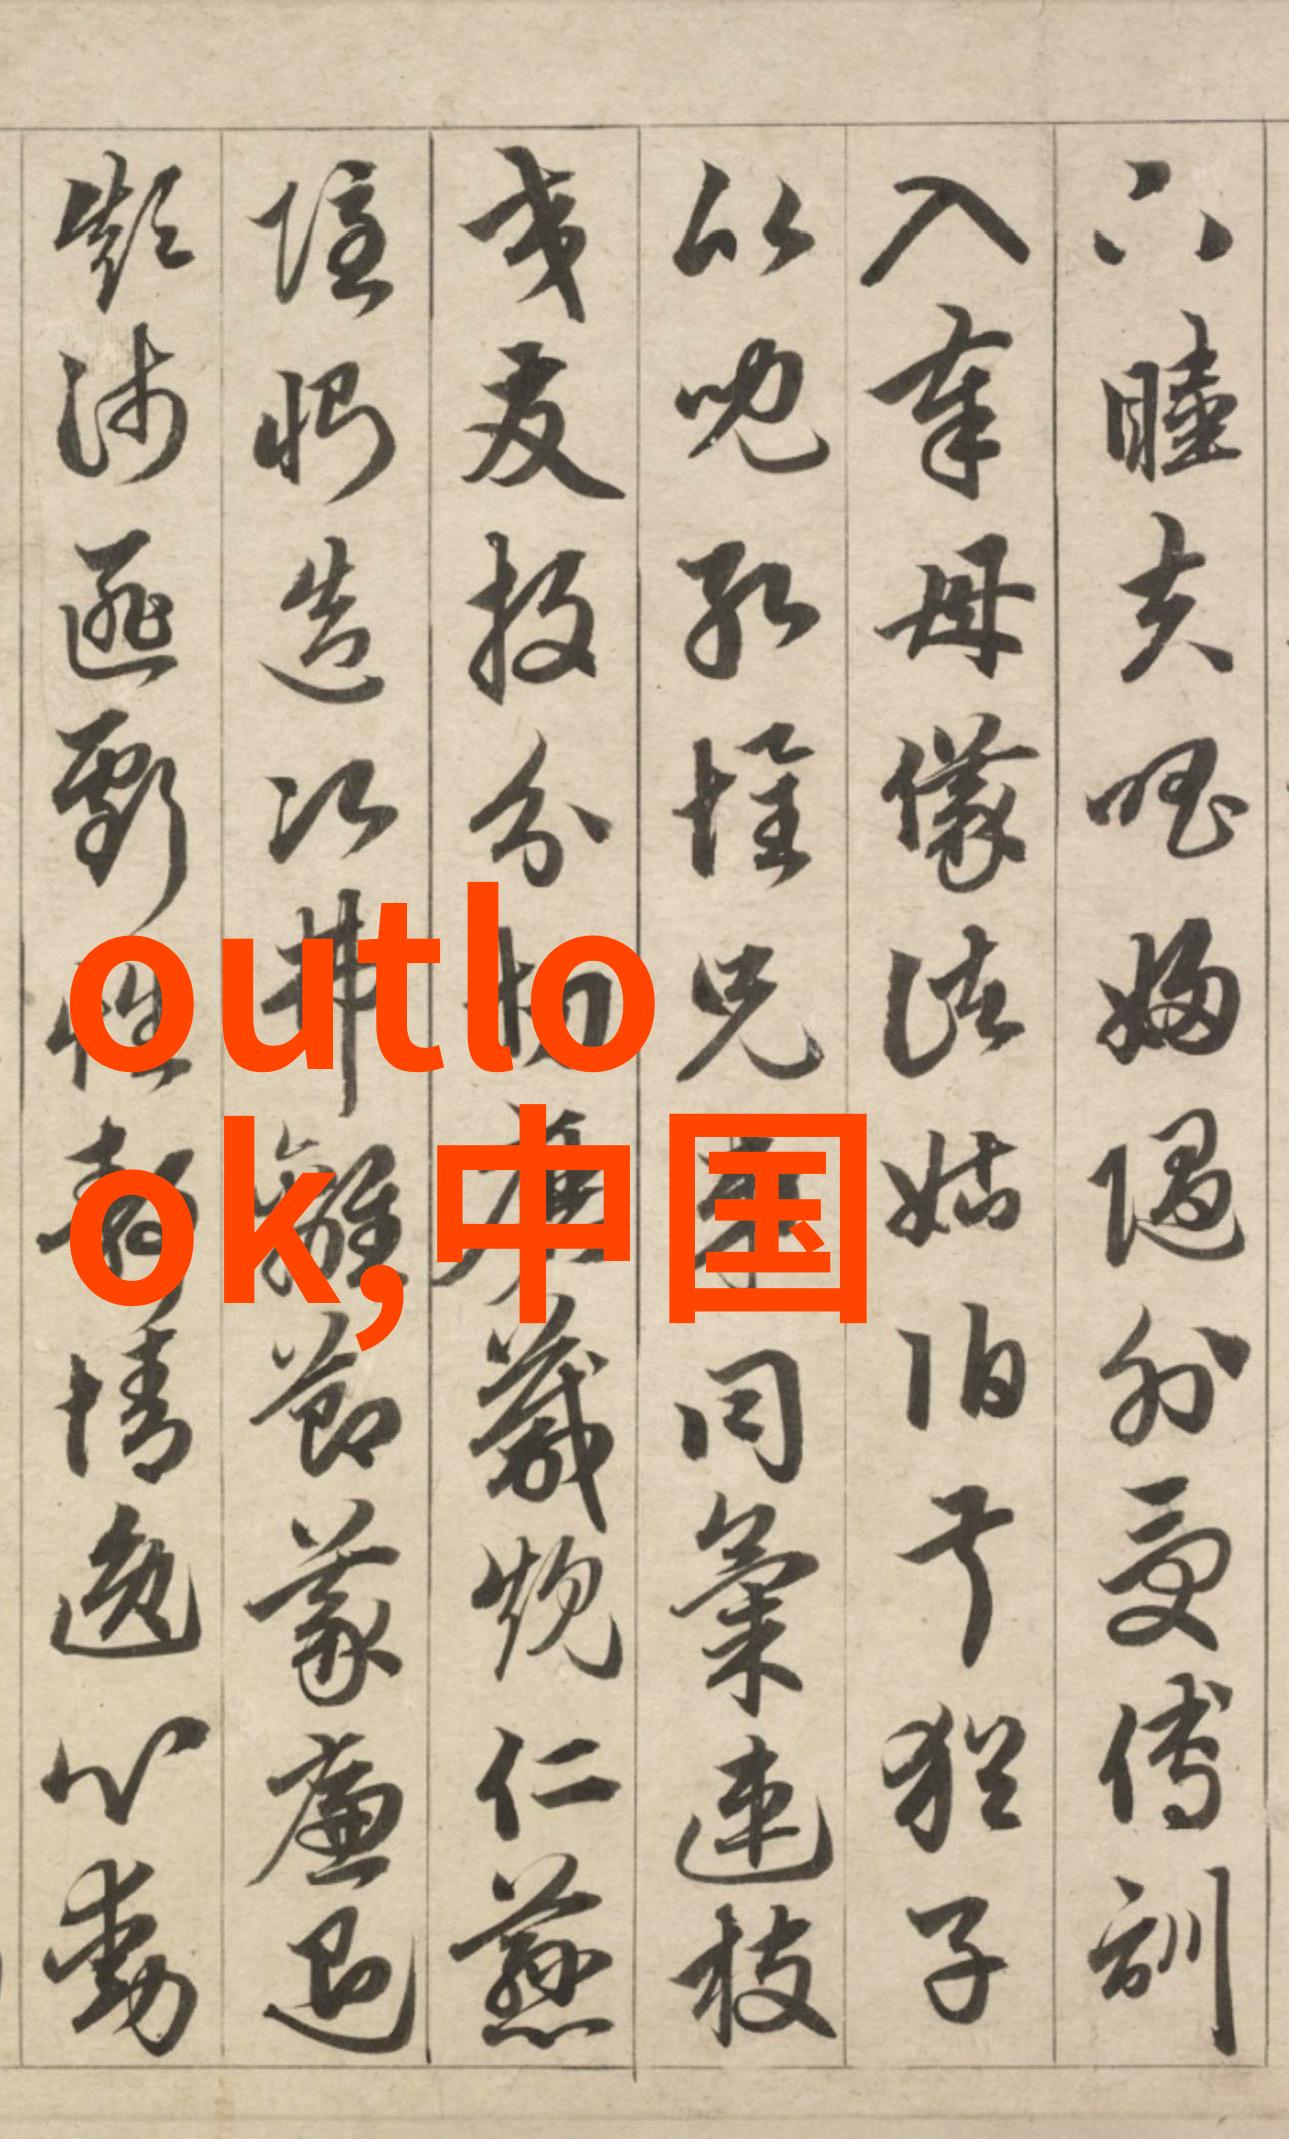 下睦夫唱婦隨外受傅訓
入奉母儀諸姑伯叔猶子
比兒孔懷兄弟同氣連枝
交友投分切磨箴規仁慈
隱惻造次弗離節義廉退
顛沛匪虧性靜情逸心動
outlo
ok,中国